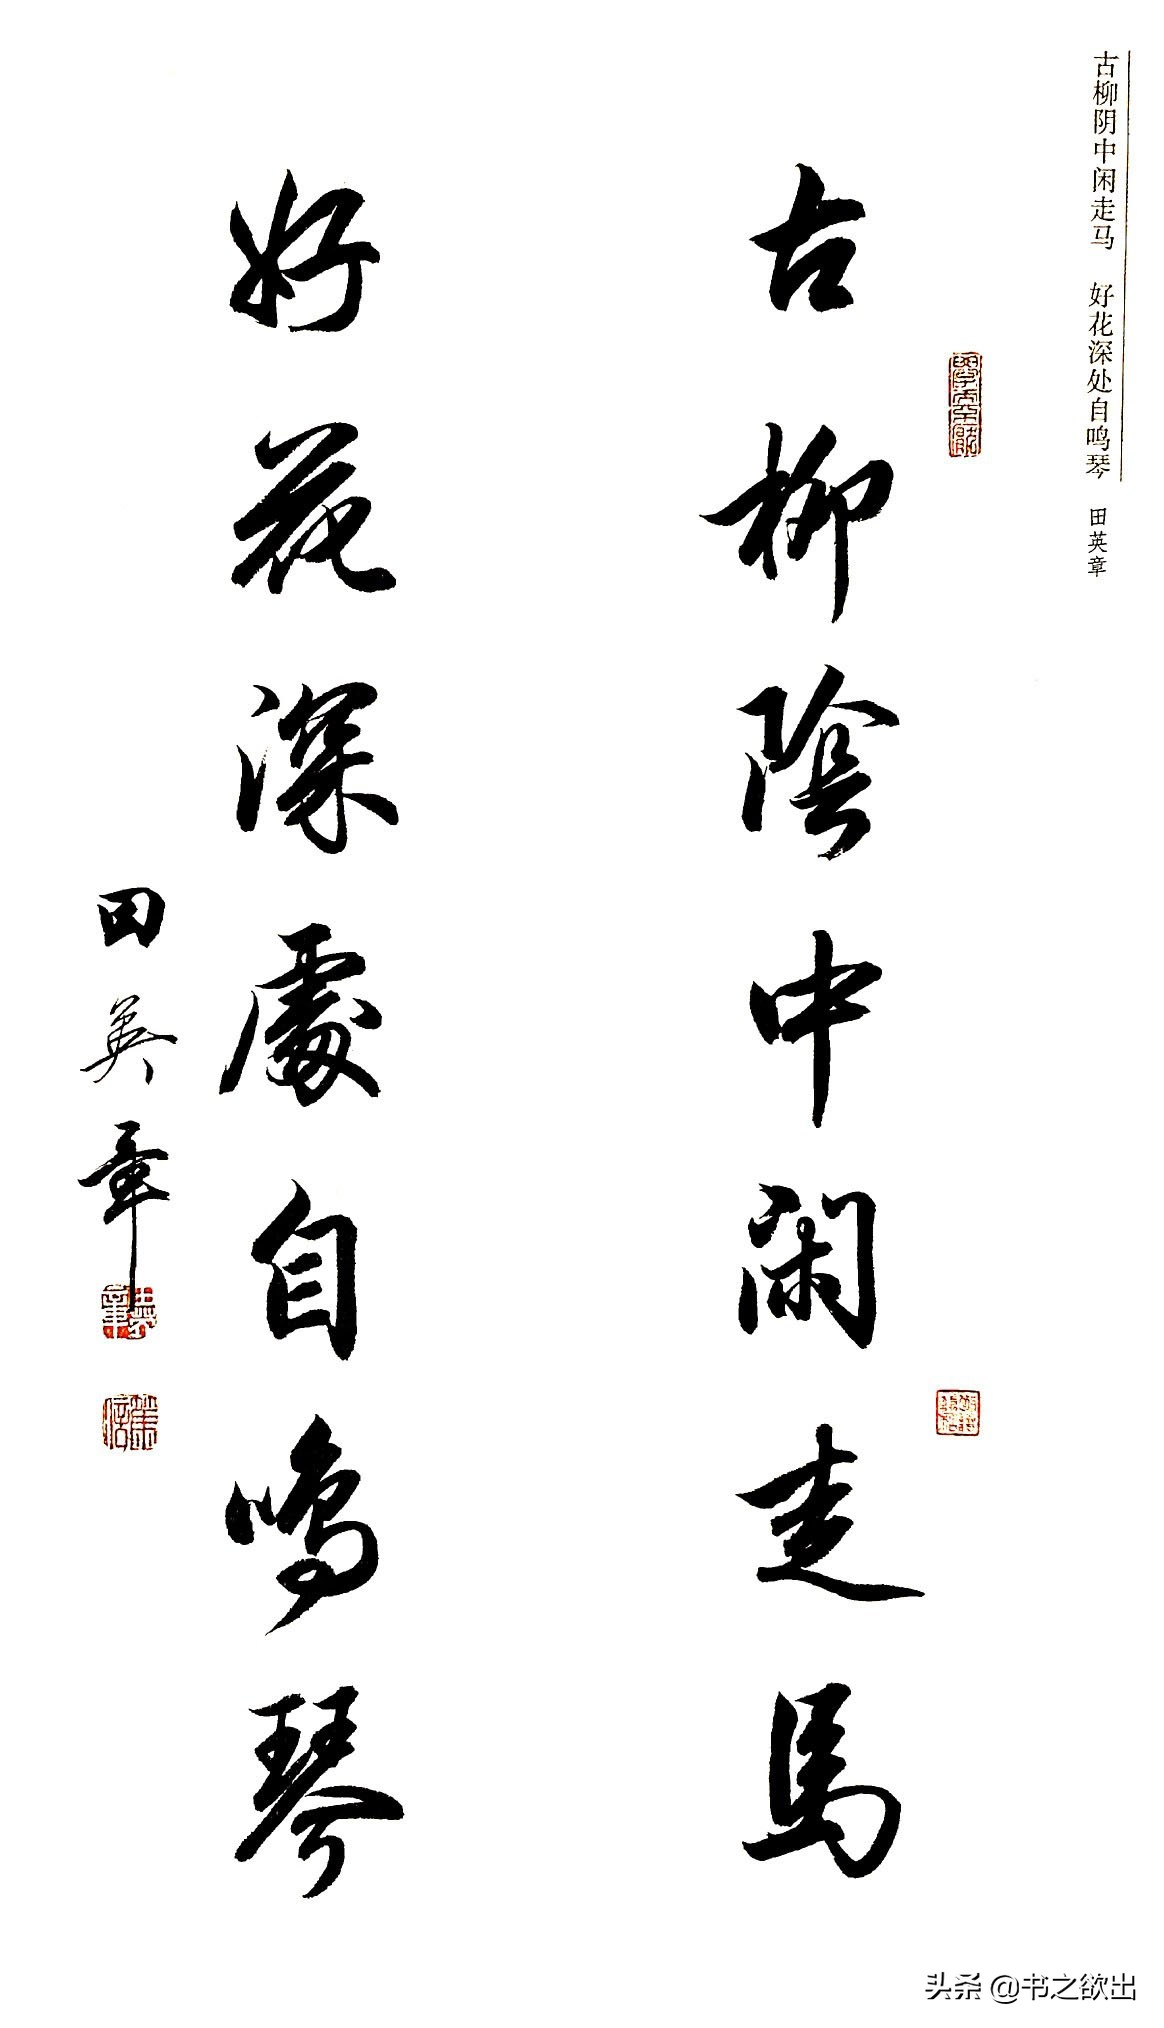 古柳阴中闲走马 好花深处自鸣琴 田英章
古柳陰中閑走馬
好花深處自鳴琴
田英章
英章
头条 @书之欲出